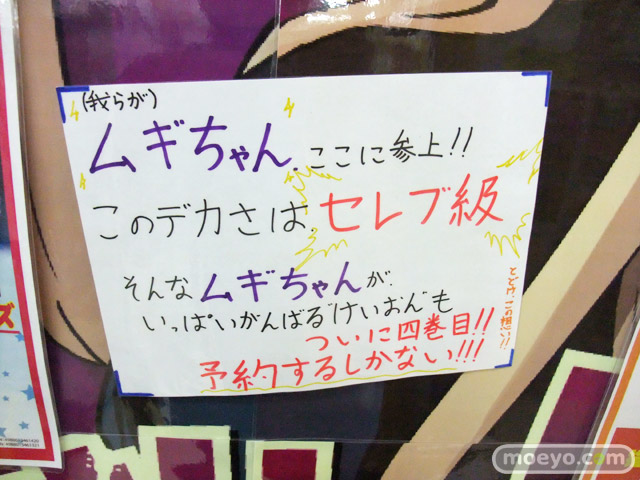 (我らが)
ムギちゃん、ここに参上!!
このデカさは、セレブ級
そんなムギちゃんが、
いっぱいがんばる"けいおん"も
ついに四巻目!!
予約するしかない!!!
とどけ、この想い!!
ズ
moeyo.com